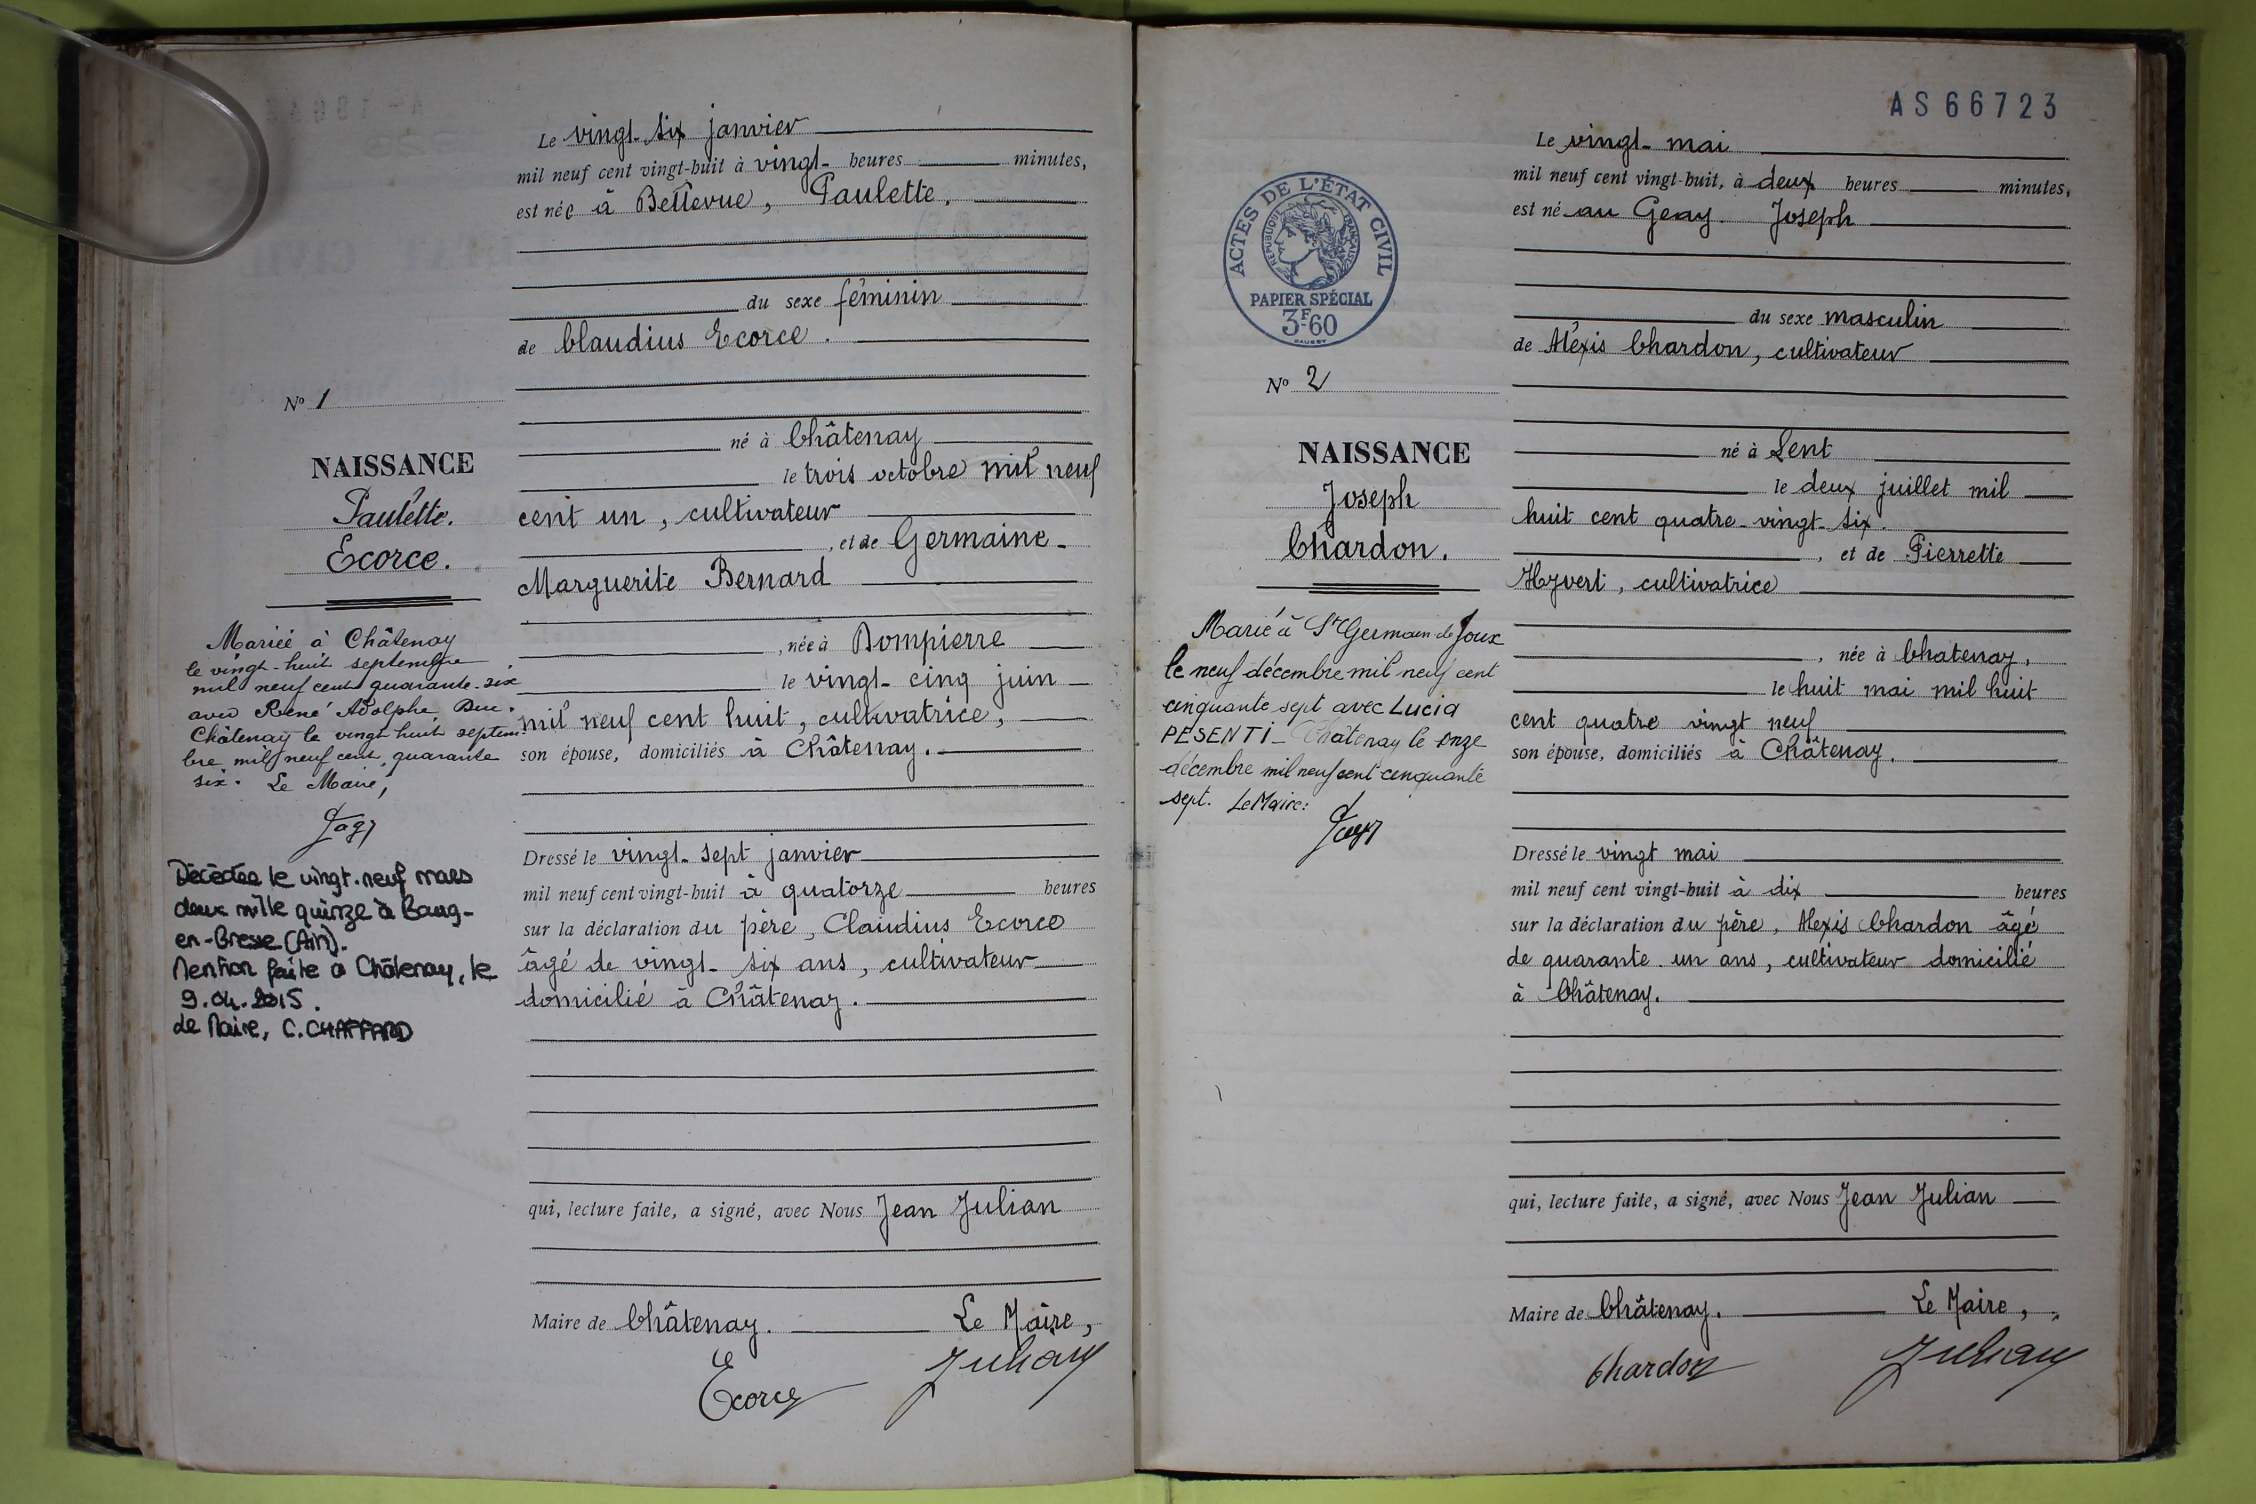 Le vingt-six janvier
mil neuf cent vingt-huit à vingt- heures minutes,
est née à Bellevue, Paulette.
du sexe féminin
de Claudius Ecorce.
né à Châtenay
le trois octobre mil neuf
cent un, cultivateur
, et de Germaine-
Marguerite Bernard
, née à Dompierre
le vingt-cinq juin
mil neuf cent huit, cultivatrice,
son épouse, domiciliés à Châtenay.
Dressé le vingt-sept janvier
mil neuf cent vingt-huit à quatorze heures
sur la déclaration du père, Claudius Ecorce
âgé de vingt-six ans, cultivateur
domicilié à Châtenay.
qui, lecture faite, a signé, avec Nous Jean Julian
Maire de Châtenay. Le Maire,
Ecorce Julian
No 1
NAISSANCE
Paulette.
Ecorce.
Mariée à Châtenay
le vingt-huit septembre
mil neuf cent quarante-six
avec René Adolphe Duc.
Châtenay le vingt-huit septem-
bre mil neuf cent quarante
six. Le Maire,
Décédée le vingt-neuf mars
deux mille quinze à Bourg-
en-Bresse (Ain).
Mention faite à Châtenay, le
9.04.2015.
Le Maire, C. CHAFFARD
AS66723
Le vingt-mai
mil neuf cent vingt-huit, à deux heures minutes,
est né au Geay. Joseph
du sexe masculin
de Aléxis Chardon, cultivateur
né à Lent
le deux juillet mil
huit cent quatre-vingt-six.
, et de Pierrette
Hyvert, cultivatrice
, née à Chatenay,
le huit mai mil huit
cent quatre vingt neuf
son épouse, domiciliés à Châtenay.
Dressé le vingt mai
mil neuf cent vingt-huit à dix heures
sur la déclaration du père, Alexis Chardon âgé
de quarante un ans, cultivateur domicilié
à Châtenay.
qui, lecture faite, a signé, avec Nous Jean Julian
Maire de Châtenay. Le Maire,
Chardon Julian
ACTES DE L'ÉTAT CIVIL
RÉPUBLIQUE FRANÇAISE
PAPIER SPÉCIAL
3F60
No 2
NAISSANCE
Joseph
Chardon.
Marié à St Germain de Joux
le neuf décembre mil neuf cent
cinquante sept avec Lucia
PESENTI_ Châtenay le onze
décembre mil neuf cent cinquante
sept. Le Maire: